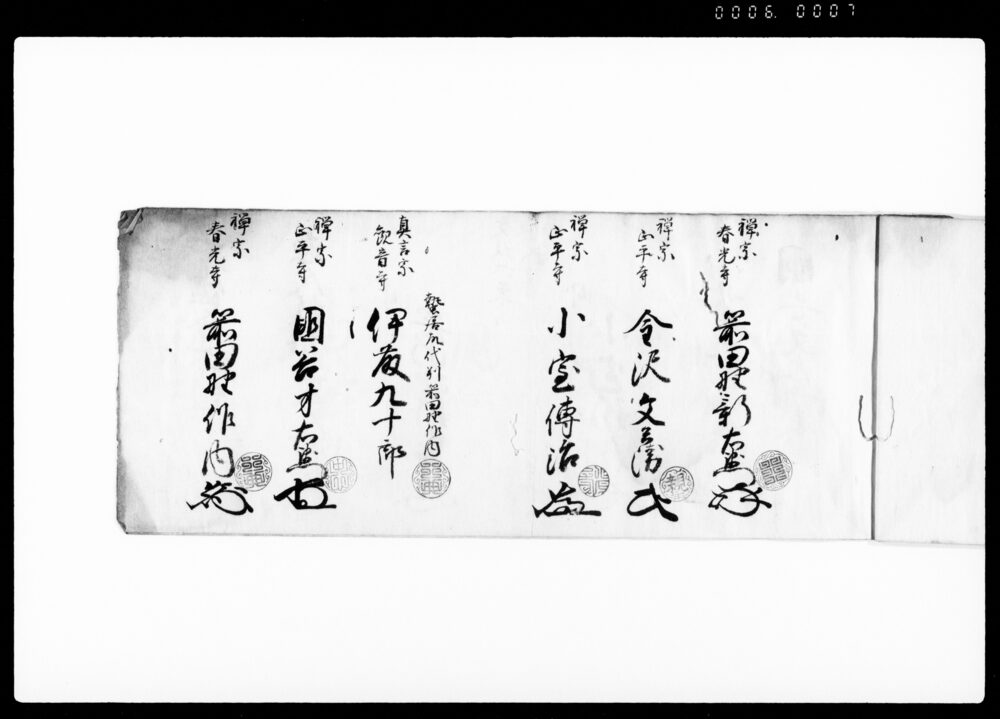 0006. 0007
禅宗
春光寺
前田野新右衛門
禅宗
正平寺
金沢文兵衛
禅宗
正平寺
小室傳治
蟄居ニ付代判前田野作内
真言宗
観音寺
伊藤九十郎
禅宗
正平寺
国谷才右衛門
禅宗
春光寺
前田野作内